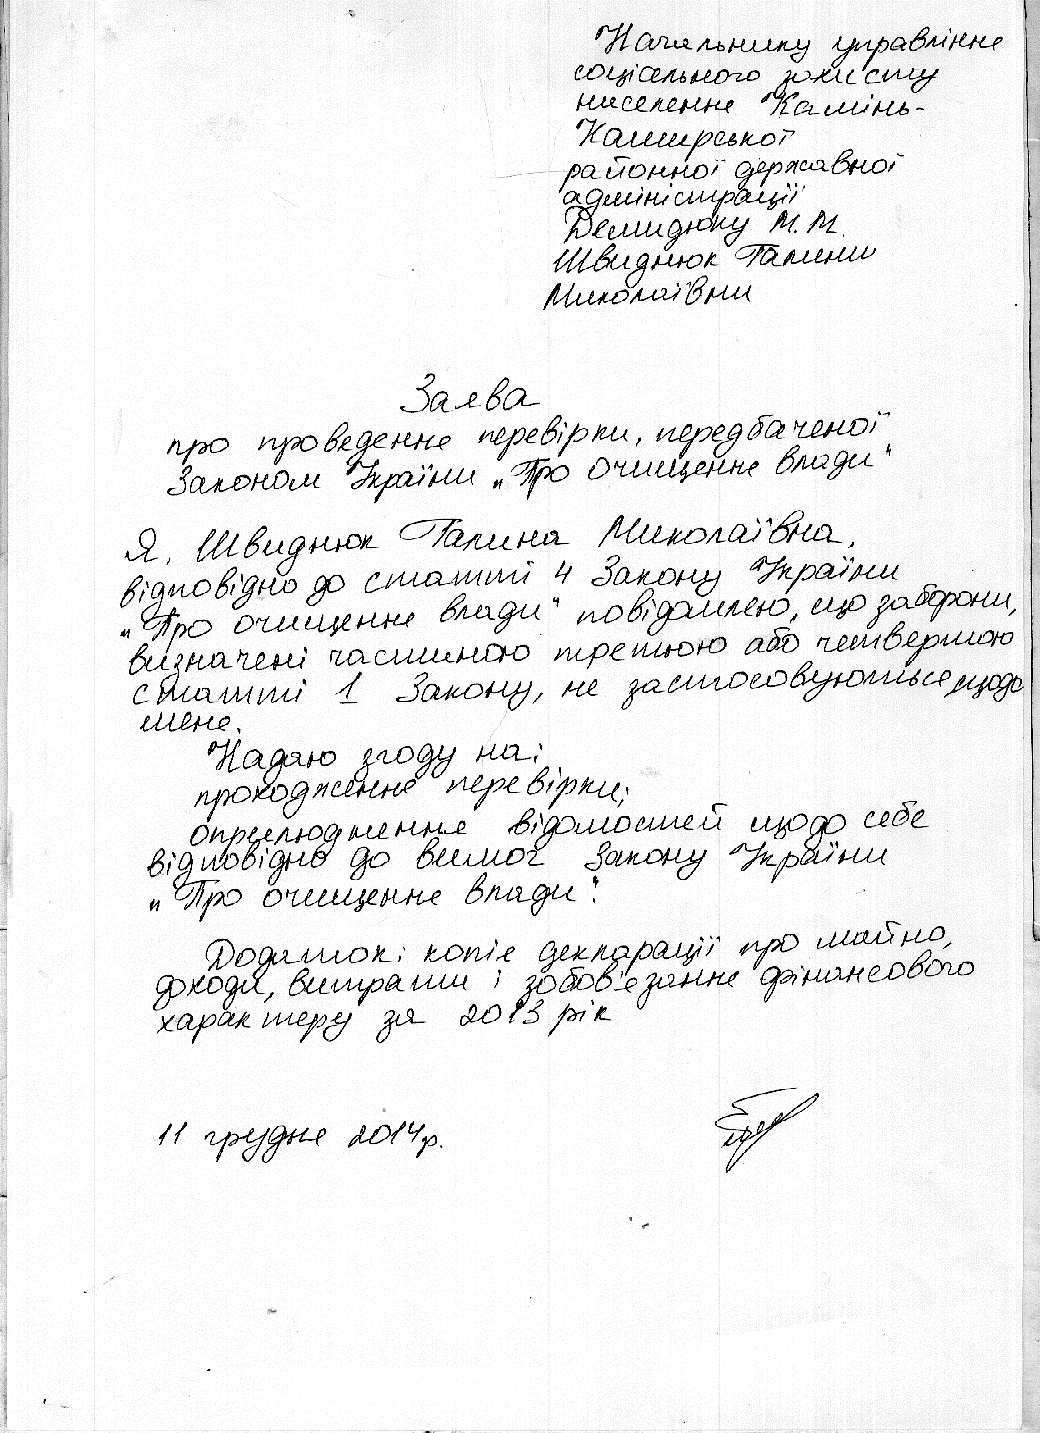 Начальнику управління
соціального захисту
населення Камінь-
Каширської
районної державної
адміністрації
Демидюку М.М.
Швиднюк Галини
Миколаївни
Заява
про проведення перевірки, передбаченої
Законом України „Про очищення влади“
Я, Швиднюк Галина Миколаївна,
відповідно до статті 4 Закону України
„Про очищення влади“ повідомляю, що заборони,
визначені частиною третьою або четвертою
статті 1 Закону, не застосовуються щодо
мене.
Надаю згоду на:
проходження перевірки;
оприлюднення відомостей щодо себе
відповідно до вимог Закону України
„Про очищення влади“.
Додаток: копія декларації про майно,
доходи, витрати і зобов'язання фінансового
характеру за 2013 рік
11 грудня 2014р.